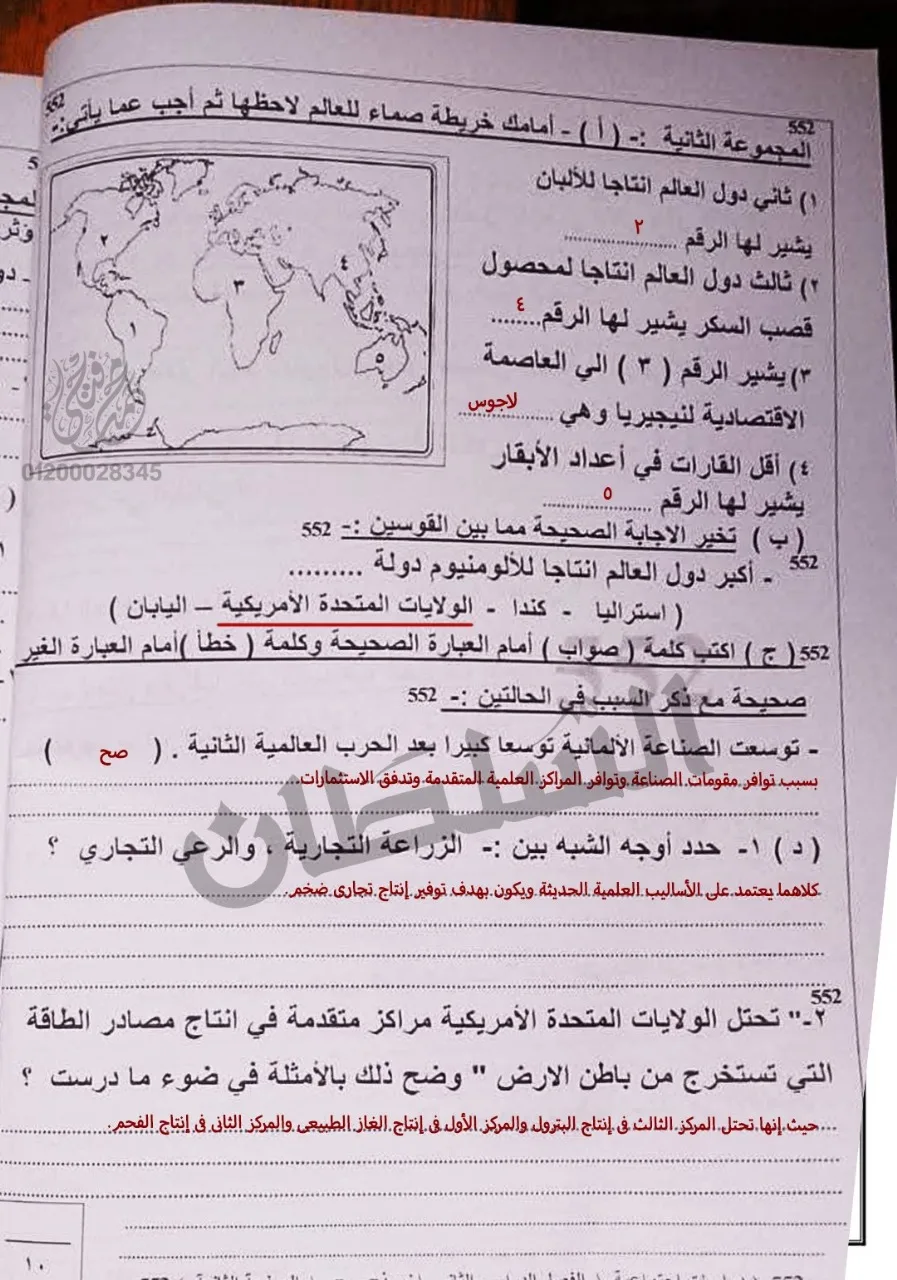 552
552
المجموعة الثانية :- ( أ ) - أمامك خريطة صماء للعالم لاحظها ثم أجب عما يأتي:-
١) ثاني دول العالم انتاجا للألبان
يشير لها الرقم ...................... ٢
٢) ثالث دول العالم انتاجا لمحصول
قصب السكر يشير لها الرقم........ ٤
٣) يشير الرقم ( ٣ ) الي العاصمة
الاقتصادية لنيجيريا وهي .................. لاجوس
٤) أقل القارات في أعداد الأبقار
يشير لها الرقم .................... ٥
١
٢
٣
٤
٥
01200028345
( ب ) تخير الاجابة الصحيحة مما بين القوسين :- 552
552
- أكبر دول العالم انتاجا للألومنيوم دولة .........
( استراليا - كندا - الولايات المتحدة الأمريكية – اليابان )
552 ( ج ) اكتب كلمة ( صواب ) أمام العبارة الصحيحة وكلمة ( خطأ )أمام العبارة الغير
صحيحة مع ذكر السبب في الحالتين :- 552
- توسعت الصناعة الألمانية توسعا كبيرا بعد الحرب العالمية الثانية . ( صح )
بسبب توافر مقومات الصناعة وتوافر المراكز العلمية المتقدمة وتدفق الاستثمارات.
السلطان
( د ) ١- حدد أوجه الشبه بين :- الزراعة التجارية ، والرعي التجاري ؟
كلاهما يعتمد على الأساليب العلمية الحديثة ويكون بهدف توفير إنتاج تجارى ضخم.
552
٢-" تحتل الولايات المتحدة الأمريكية مراكز متقدمة في انتاج مصادر الطاقة
التي تستخرج من باطن الارض " وضح ذلك بالأمثلة في ضوء ما درست ؟
حيث إنها تحتل المركز الثالث فى إنتاج البترول والمركز الأول فى إنتاج الغاز الطبيعى والمركز الثانى فى إنتاج الفحم.
١٠